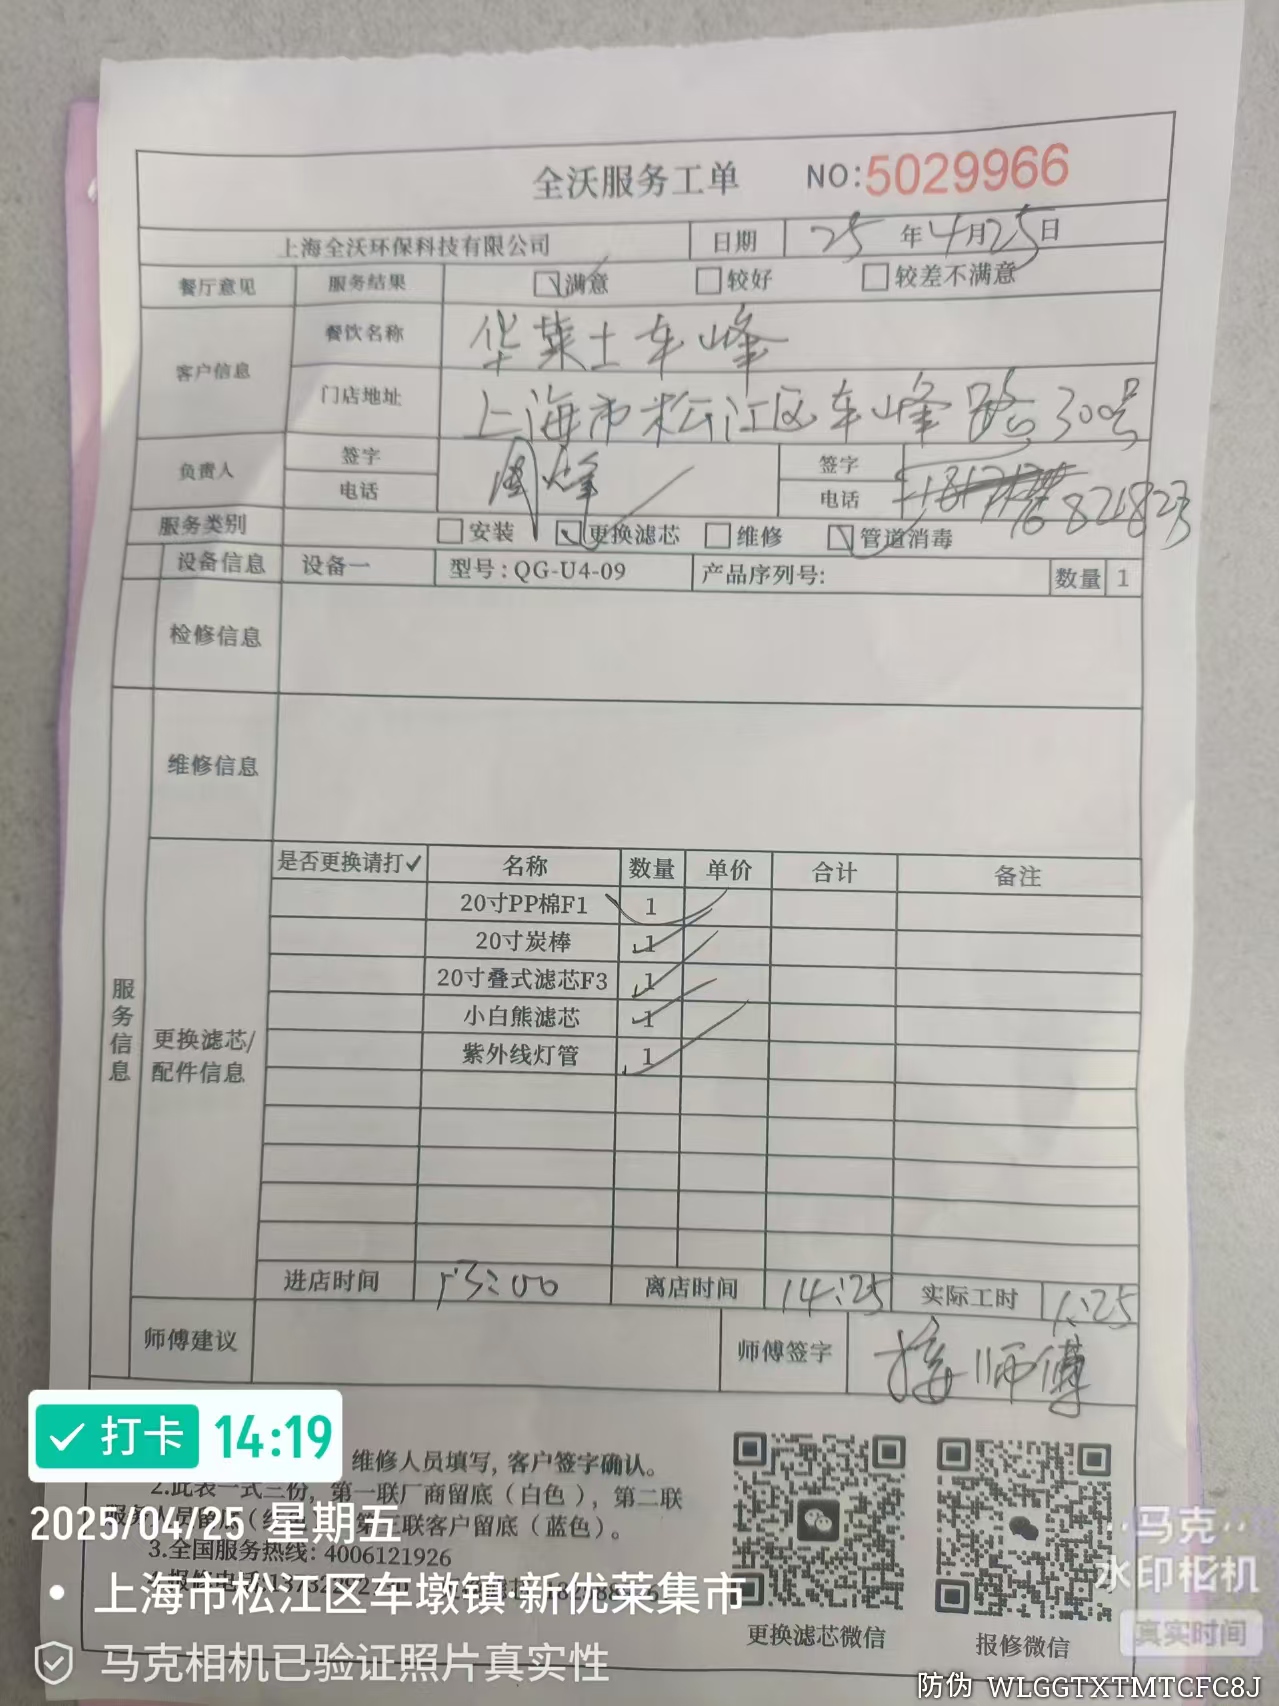 全沃服务工单 NO:5029966
上海全沃环保科技有限公司 日期 25年4月25日
餐厅意见 服务结果 满意 较好 较差不满意
客户信息 餐饮名称 华莱士车峰
门店地址 上海市松江区车峰路300号
负责人 签字 周峰 签字
电话 电话
服务类别 安装 更换滤芯 维修 管道消毒
设备信息 设备一 型号:QG-U4-09 产品序列号: 数量 1
检修信息
维修信息
服务信息
更换滤芯/配件信息
是否更换请打✓ 名称 数量 单价 合计 备注
20寸PP棉F1 1
20寸炭棒 1
20寸叠式滤芯F3 1
小白熊滤芯 1
紫外线灯管 1
进店时间 13:00 离店时间 14:25 实际工时 1:25
师傅建议 师傅签字 师傅
维修人员填写,客户签字确认。
2.此表一式三份,第一联厂商留底(白色),第二联
联客户留底(蓝色)。
3.全国服务热线:4006121926
更换滤芯微信 报修微信
打卡 14:19
2025/04/25 星期五
上海市松江区车墩镇·新优莱集市
马克相机已验证照片真实性
马克
水印相机
真实时间
防伪 WLGGTXTMTCFC8J